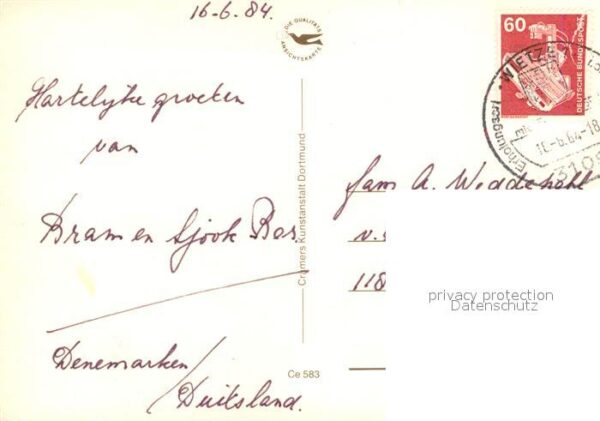 16-6.84.
DIE QUALITÄTS
ANSICHTSKARTE
60
DEUTSCHE BUNDESPOST
WIETZE
Erholungsort
16.-6.84-18
3109
Hartelijke groeten
van
Bram en Sjook Bos.
Denemarken/
Duitsland.
Cramers Kunstanstalt Dortmund
Ce 583
fam A. Weddepohl
118
privacy protection
Datenschutz